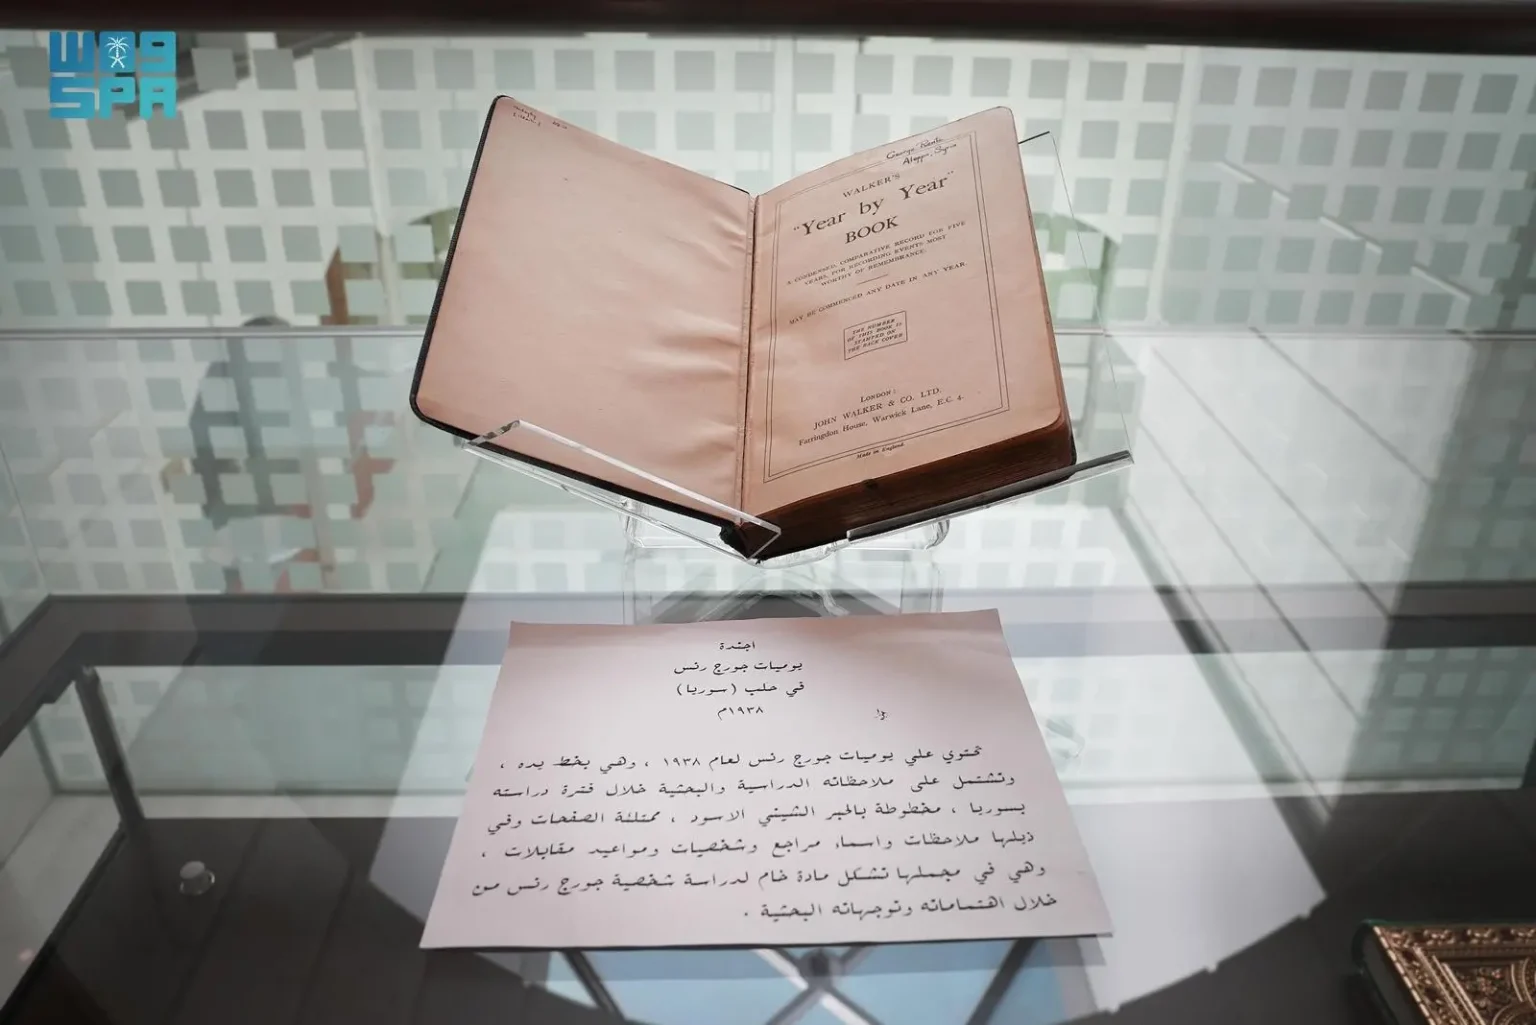 واس
SPA
George Rentz
Aleppo, Syria
WALKER'S
"Year by Year"
BOOK
A CONDENSED, COMPARATIVE RECORD FOR FIVE
YEARS, FOR RECORDING EVENTS MOST
WORTHY OF REMEMBRANCE.
MAY BE COMMENCED ANY DATE IN ANY YEAR.
THE NUMBER
OF THIS BOOK IS
STAMPED ON
THE BACK COVER
LONDON:
JOHN WALKER & CO. LTD.
Farringdon House, Warwick Lane, E.C. 4.
Made in England
اجندة
يوميات جورج رنس
في حلب (سوريا)
١٩٣٨م
تحتوي علي يوميات جورج رنس لعام ١٩٣٨ ، وهي بخط يده ،
وتشتمل على ملاحظاته الدراسية والبحثية خلال فترة دراسته
بسوريا ، مخطوطة بالحبر الشيني الاسود ، ممتلئة الصفحات وفي
ذيلها ملاحظات واسماء مراجع وشخصيات ومواعيد مقابلات ،
وهي في مجملها تشكل مادة خام لدراسة شخصية جورج رنس من
خلال اهتماماته وتوجهاته البحثية .